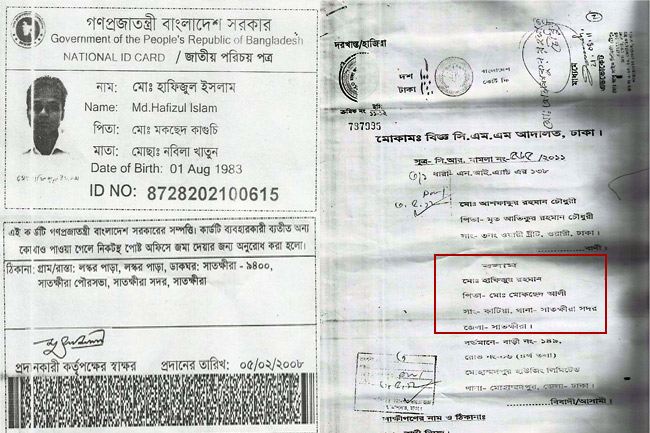 গণপ্রজাতন্ত্রী বাংলাদেশ সরকার
Government of the People's Republic of Bangladesh
NATIONAL ID CARD / জাতীয় পরিচয় পত্র
নাম: মোঃ হাফিজুল ইসলাম
Name: Md.Hafizul Islam
পিতা: মোঃ মকছেদ কাগুচি
মাতা: মোছাঃ নবিলা খাতুন
Date of Birth: 01 Aug 1983
ID NO: 8728202100615
এই কার্ডটি গণপ্রজাতন্ত্রী বাংলাদেশ সরকারের সম্পত্তি। কার্ডটি ব্যবহারকারী ব্যতীত অন্য
কোথাও পাওয়া গেলে নিকটস্থ পোষ্ট অফিসে জমা দেয়ার জন্য অনুরোধ করা হলো।
ঠিকানা: গ্রাম/রাস্তা: লস্কর পাড়া, লস্কর পাড়া, ডাকঘর: সাতক্ষীরা - ৯৪০০,
সাতক্ষীরা পৌরসভা, সাতক্ষীরা সদর, সাতক্ষীরা
প্রদানকারী কর্তৃপক্ষের স্বাক্ষর
প্রদানের তারিখ: ০৫/০২/২০০৮
দরখাস্ত/হাজিরা
দশ
টাকা
বাংলাদেশ
কোর্ট ফি
মোকামঃ বিজ্ঞ সি.এম.এম আদালত, ঢাকা।
সূত্র- সি.আর. মামলা নং /২০১১
ধারা- এন.আই.এ্যাক্ট এর ১৩৮
মোঃ আশফাকুর রহমান চৌধুরী
পিতা- মৃত আতিকুর রহমান চৌধুরী
সাং- ওয়ারী ষ্ট্রীট, ওয়ারী, ঢাকা।
বাদী
বনাম
মোঃ হাফিজুর রহমান
পিতা- মোঃ মোকছেদ আলী
সাং- কাটিয়া, থানা- সাতক্ষীরা সদর
জেলা- সাতক্ষীরা।
বর্তমানে- বাড়ী নং- ১৪৯,
রোড নং-০৬ (৪র্থ তলা)
মোহাম্মদপুর হাউজিং লিমিটেড
থানা- মোহাম্মদপুর, জেলা- ঢাকা।
বিবাদী/আসামী।